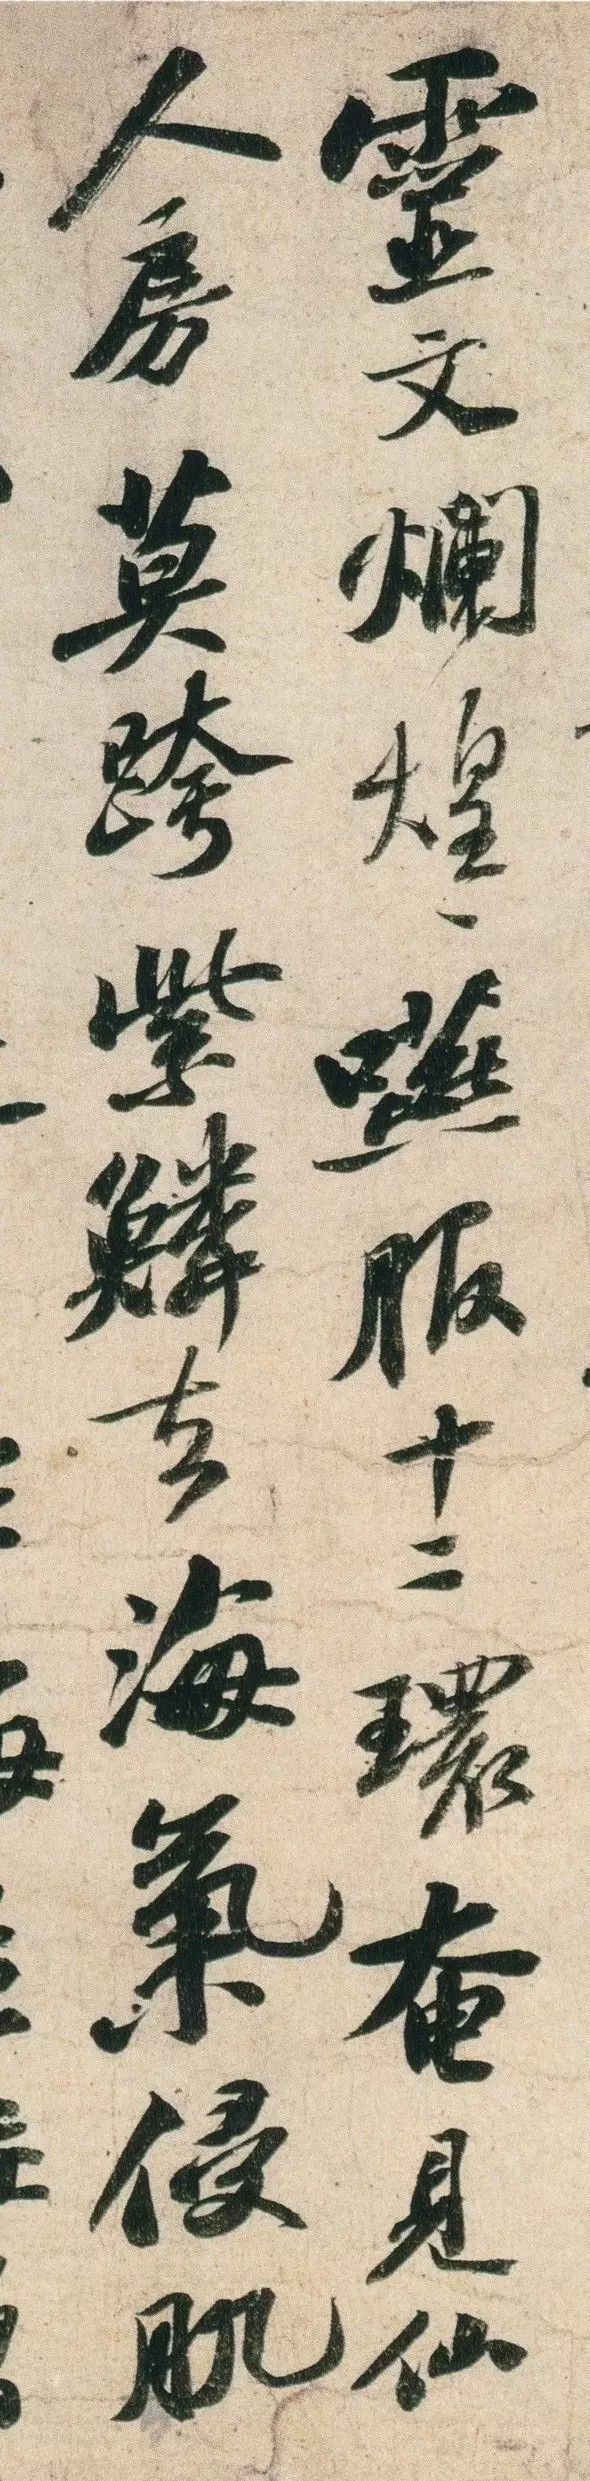 靈文爛煌〻嚥服十二環奄見仙
人房莫跨紫鱗去海氣侵肌